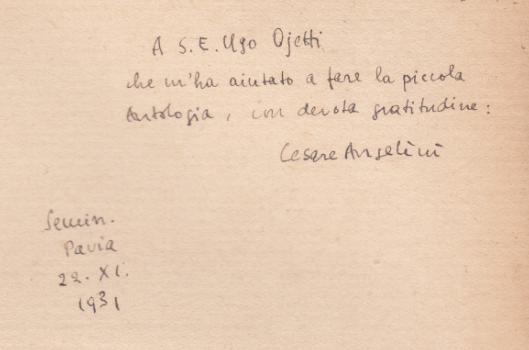 A S. E. Ugo Ojetti
che m'ha aiutato a fare la piccola
Antologia, con devota gratitudine:
Cesare Angelini
Semin.
Pavia
22. XI.
1931